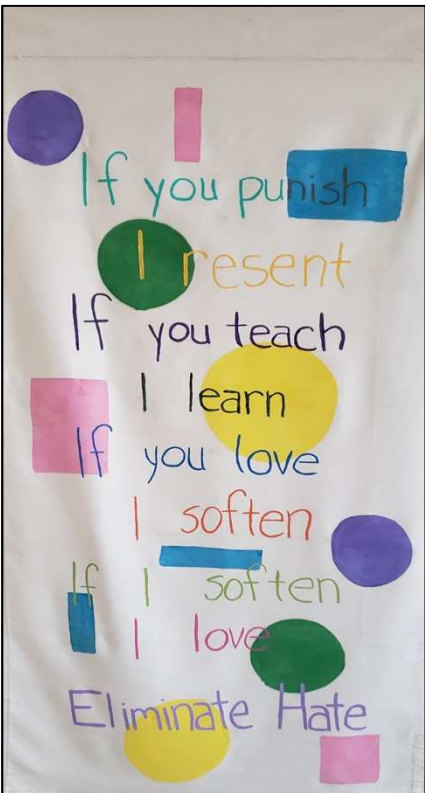 If you punish
I resent
If you teach
I learn
If you love
I soften
If I soften
I love
Eliminate Hate